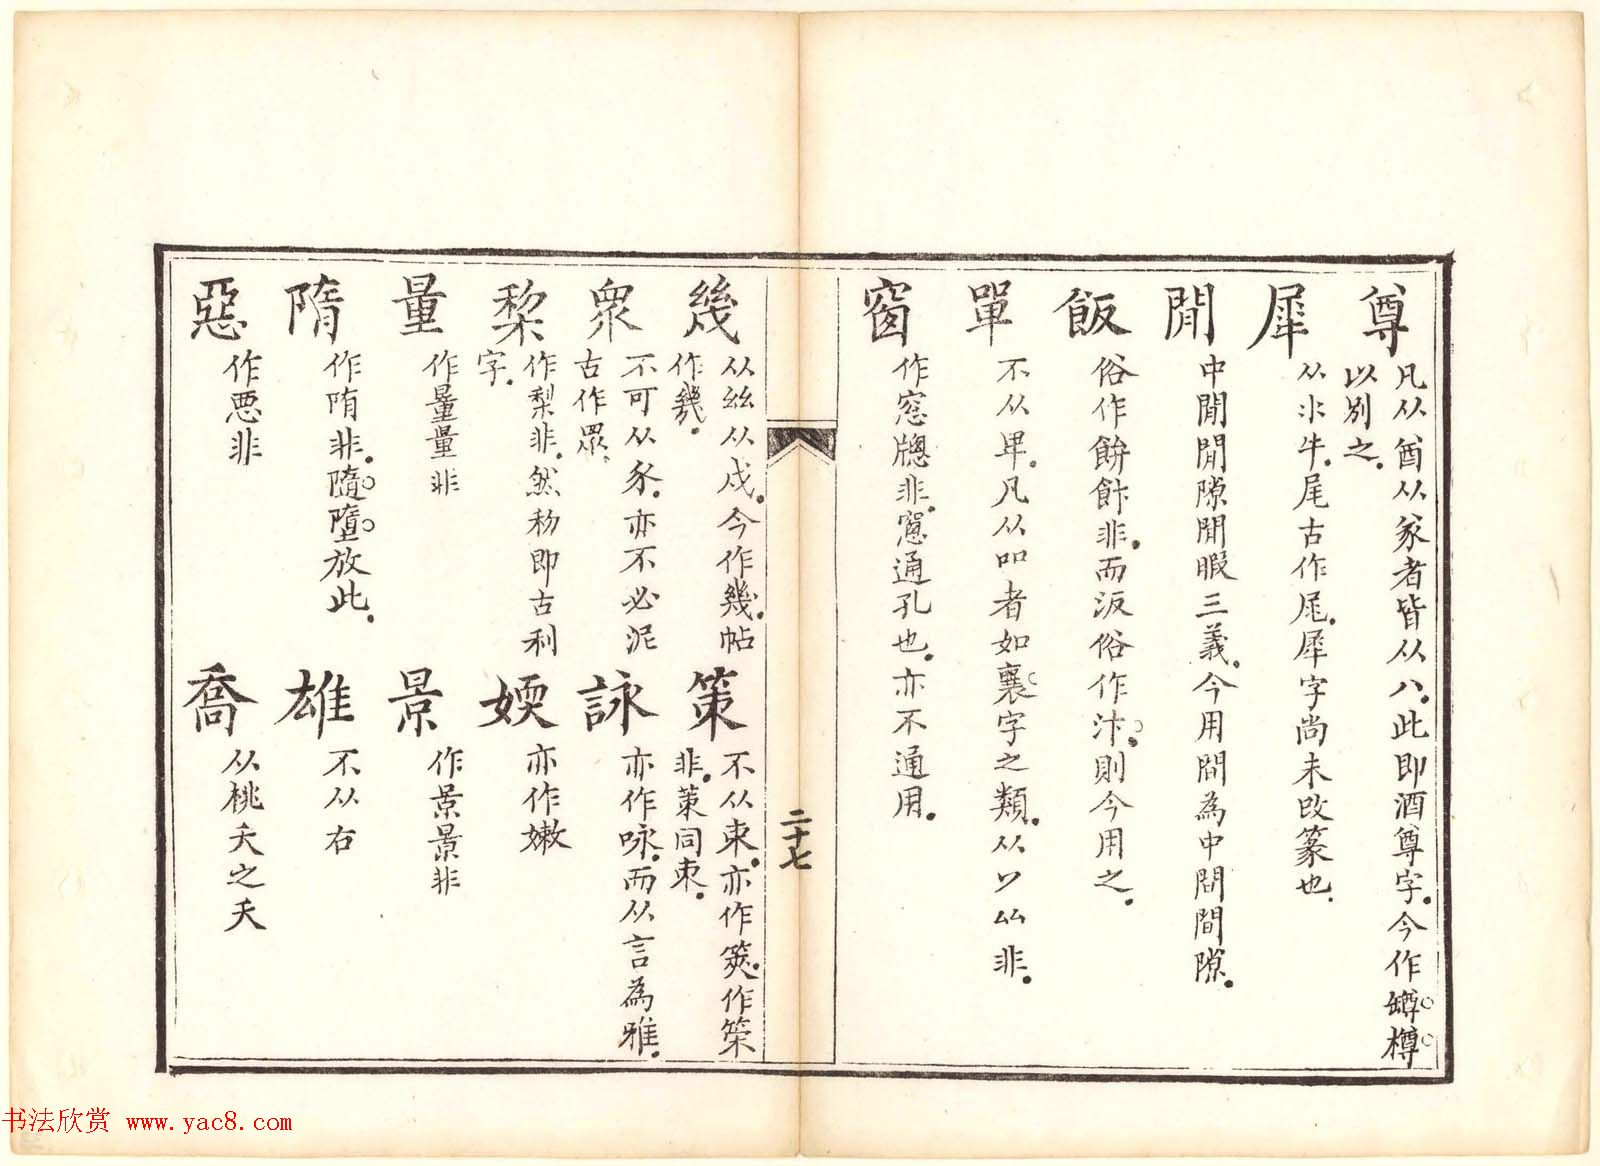 尊
凡从酋从豕者皆从八此即酒尊字今作罇樽
以别之
犀
从氺牛尾古作𡱕犀字尚未改篆也
閒
中閒閒隙閒暇三義今用間為中間間隙
飯
俗作餅飰非而汳俗作汴則今用之
單
不从毕凡从吅者如襄字之類从丷厸非
窗
作窓牕非窻通孔也亦不通用
二十七
幾
从絲从戍今作幾帖
作㡬
策
不从束亦作筴作筞
非萗同朿
衆
不可从豕亦不必泥
古作眾
詠
亦作咏而从言為雅
棃
作梨非然秎即古利
字
媆
亦作嫩
量
作量量非
景
作景景非
隋
作隋非隨墮放此
雄
不从右
惡
作悪非
喬
从桃夭之夭
书法欣赏 www.yac8.com